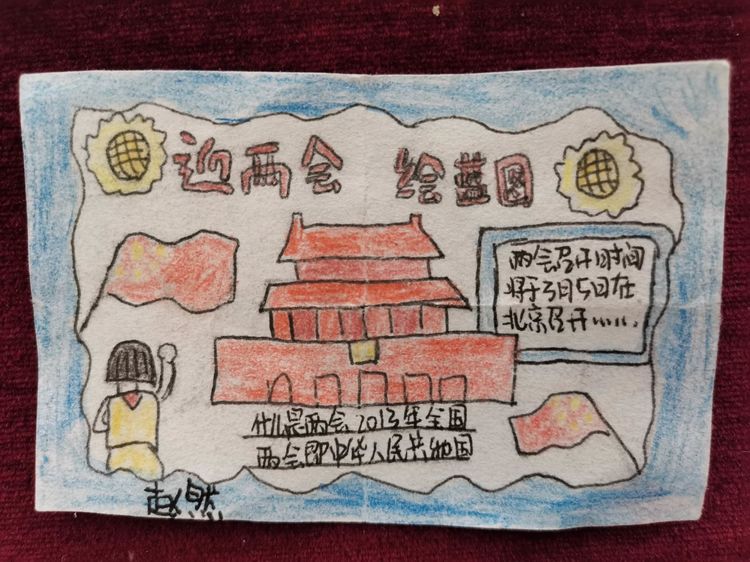 迎两会 绘蓝图
两会召开时间
将于3月5日在
北京召开……
什么是两会2013年全国
两会即中华人民共和国
赵然